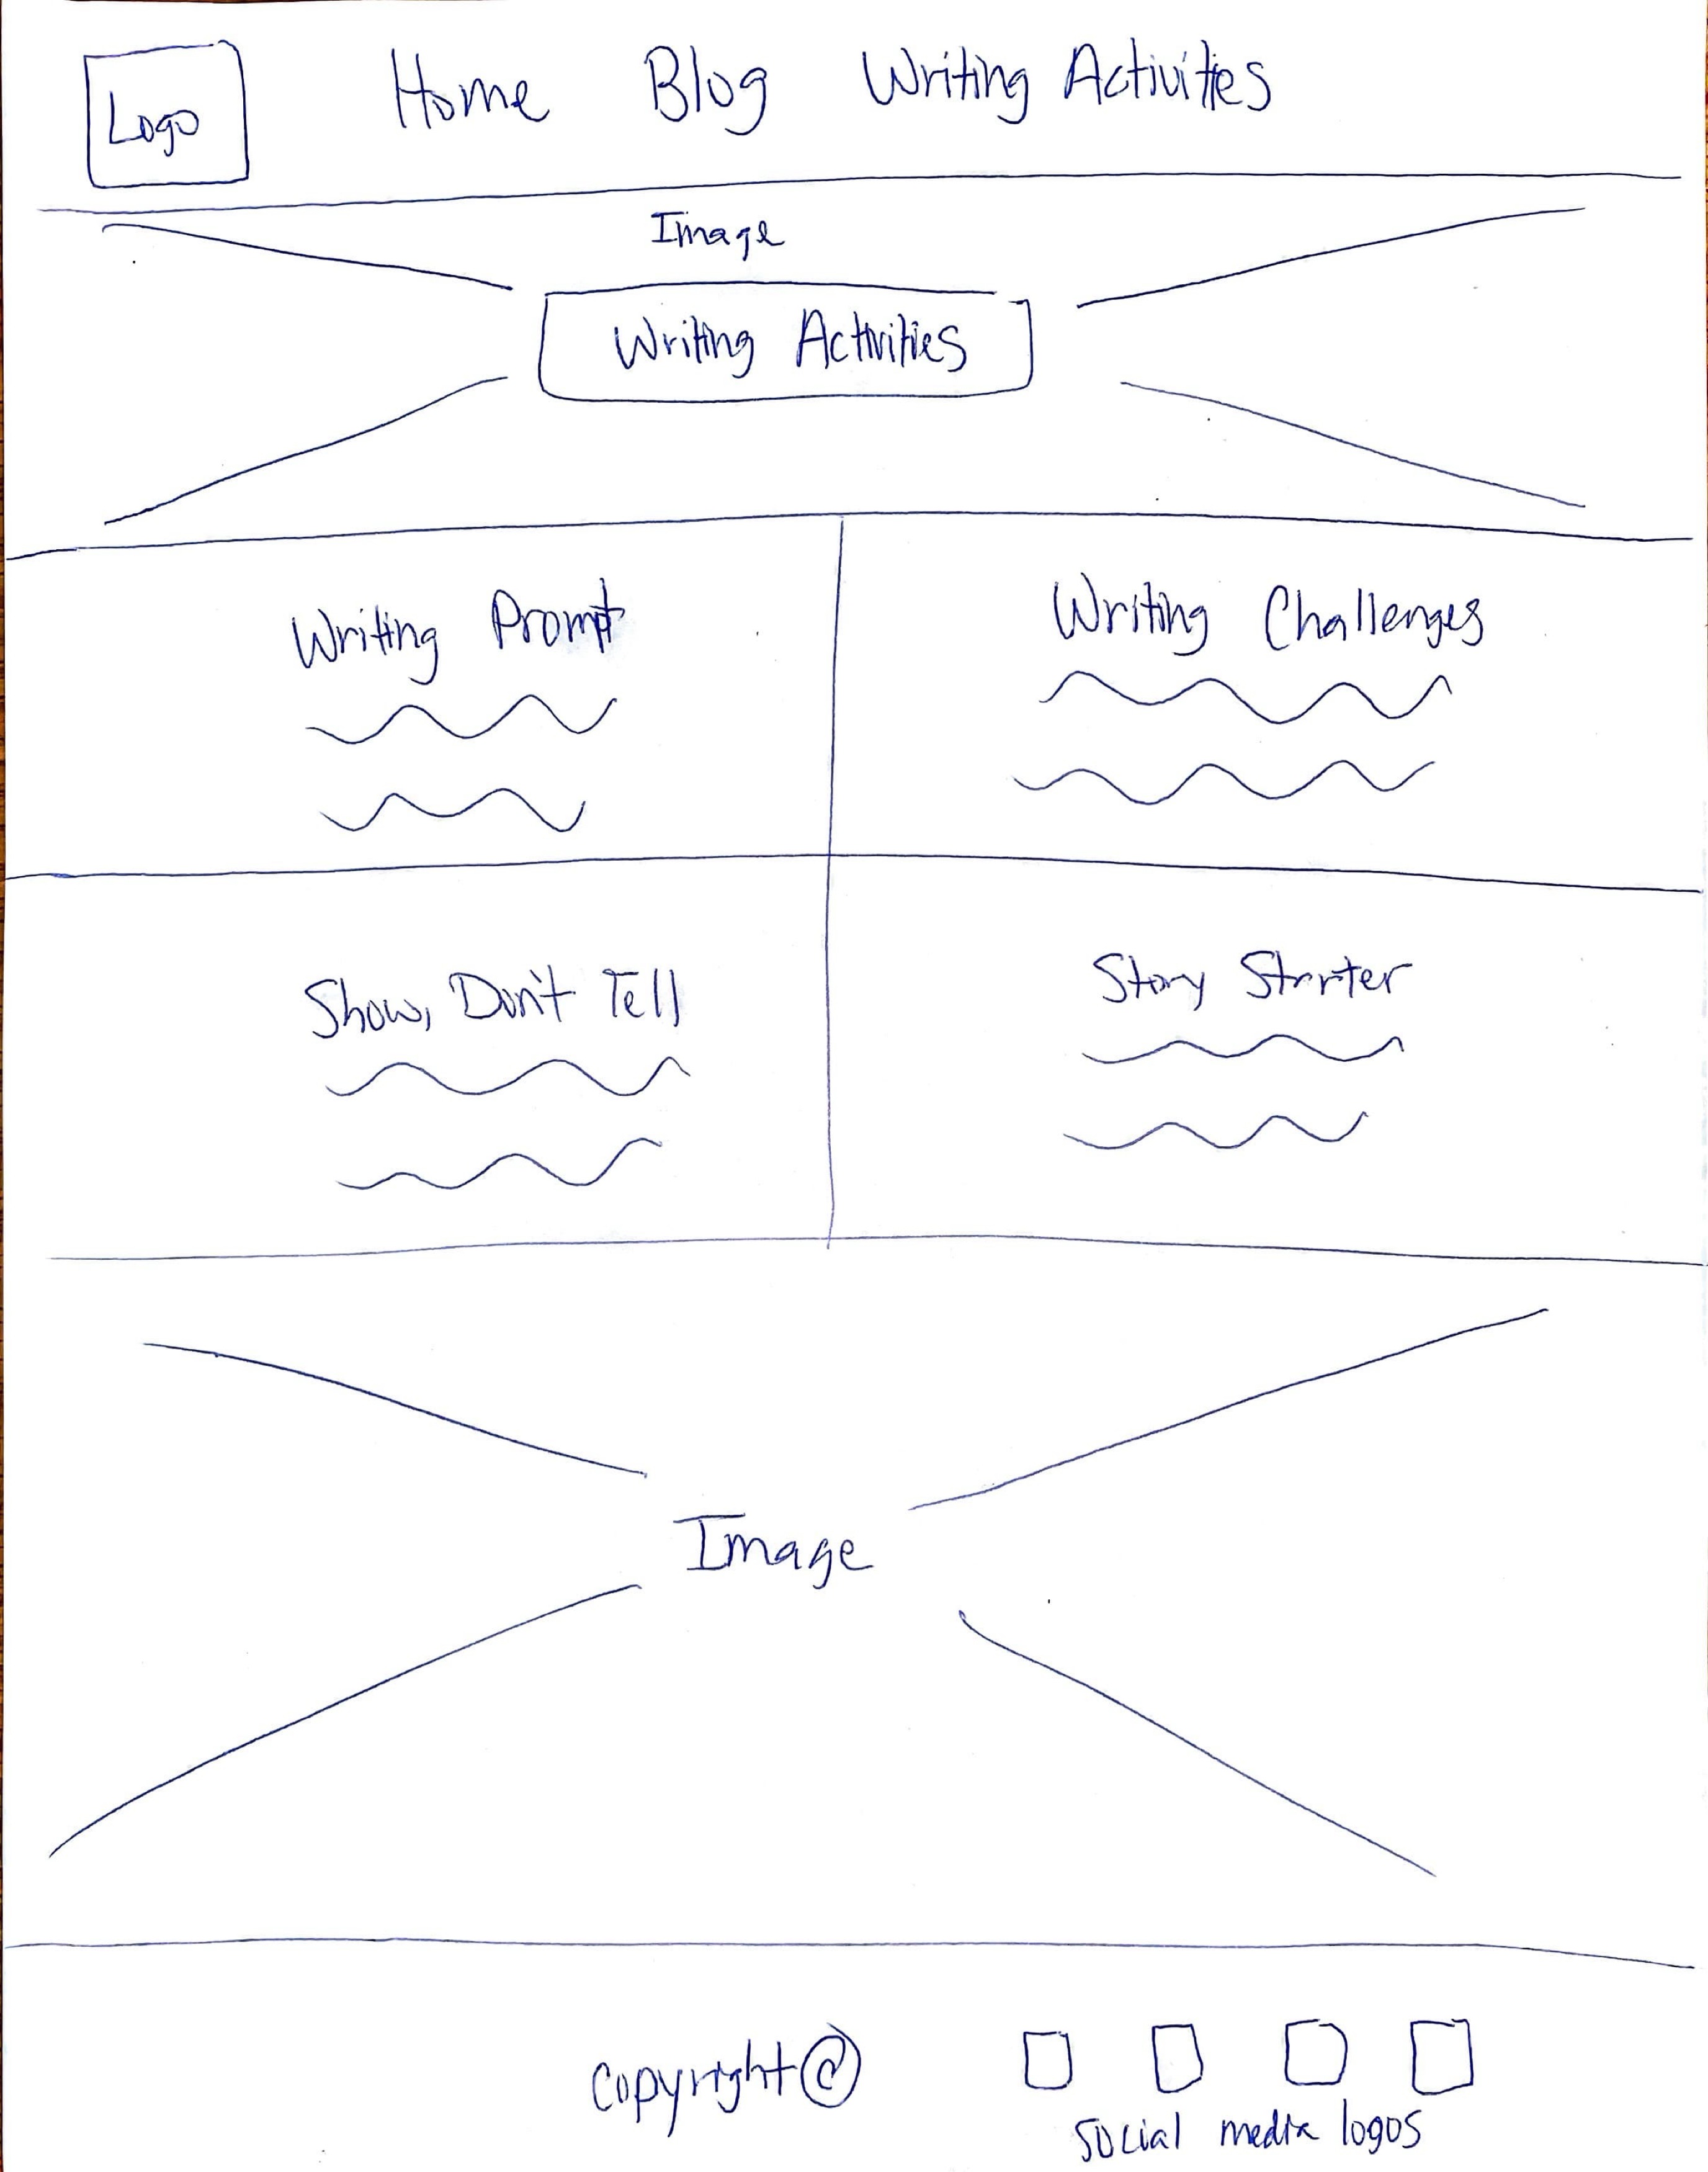 Logo
Home Blog Writing Activities
Image
Writing Activities
Writing Prompt
Writing Challenges
Show, Don't Tell
Story Starter
Image
Copyright ©
social media logos